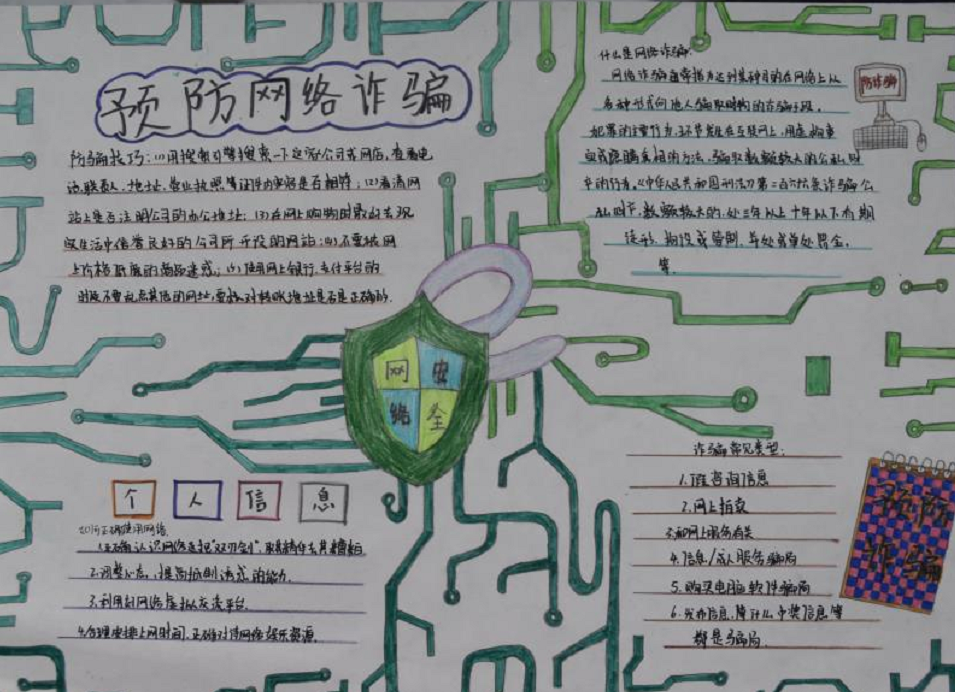 预防网络诈骗
防骗技巧：(1)用搜索引擎搜索一下这家公司或网店，查看电
话、联系人、地址、营业执照等证件内容是否相符；(2)看清网
站上是否注明公司的办公地址；(3)在网上购物时最好去现
实生活中信誉良好的公司所开设的网站；(4)不要被网
上价格低廉的商品迷惑；(5)使用网上银行、支付平台的
时候不要乱点其他的网址，要核对转账地址是否是正确的.
什么是网络诈骗：
网络诈骗通常指为达到某种目的在网络上以
各种形式向他人骗取财物的诈骗手段。
犯罪的主要行为、环节发生在互联网上，用虚构事
实或隐瞒真相的方法，骗取数额较大的公私财
的行为。《中华人民共和国刑法》第二百六十六条诈骗公
私财，数额较大的，处三年以上十年以下有期
徒刑、拘役或管制，并处或单处罚金，
等.
防诈骗
网安
络全
个人信息
如何正确使用网络
1.正确认识网络这把"双刃剑"，取其精华去其糟粕
2.调整心态，提高抵制诱惑的能力.
3.利用好网络虚拟交流平台.
4.合理安排上网时间，正确对待网络娱乐资源.
诈骗常见类型：
咨询信息
2.网上拍卖
3.和网上服务有关
4.信息/成人服务骗局
5.购买电脑软件骗局
6.发布信息，中奖信息等
都是骗局.
预防
诈骗